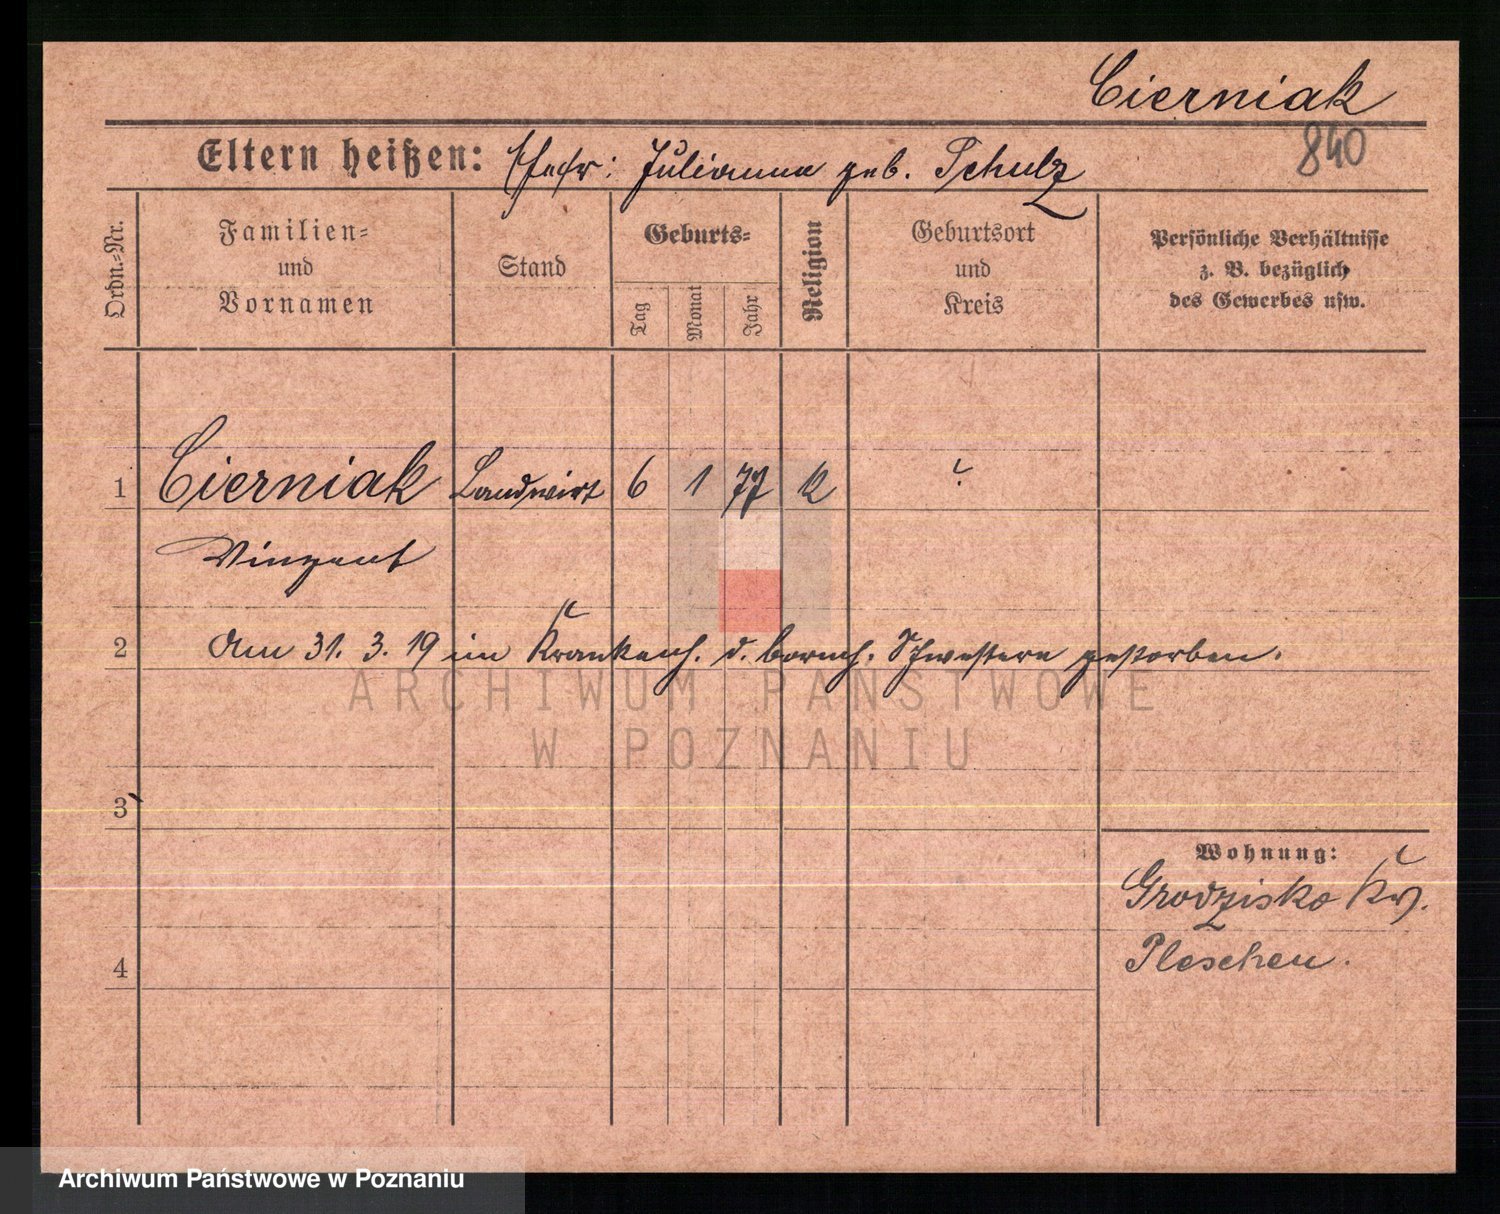 Cierniak
840
Eltern heißen: Ehefr: Julianna geb. Schulz
Ordn.-Nr.
Familien- und Vornamen
Stand
Geburts-
Tag
Monat
Jahr
Religion
Geburtsort und Kreis
Persönliche Verhältnisse z. B. bezüglich des Gewerbes usw.
1 Cierniak Landwirt 6 1 77 k ?
Vinzent
2 Am 31. 3. 19 im Krankenh. d. barmh. Schwestern gestorben.
ARCHIWUM PAŃSTWOWE
W POZNANIU
3
Wohnung:
Grodzisko Kr.
Pleschen.
4
Archiwum Państwowe w Poznaniu